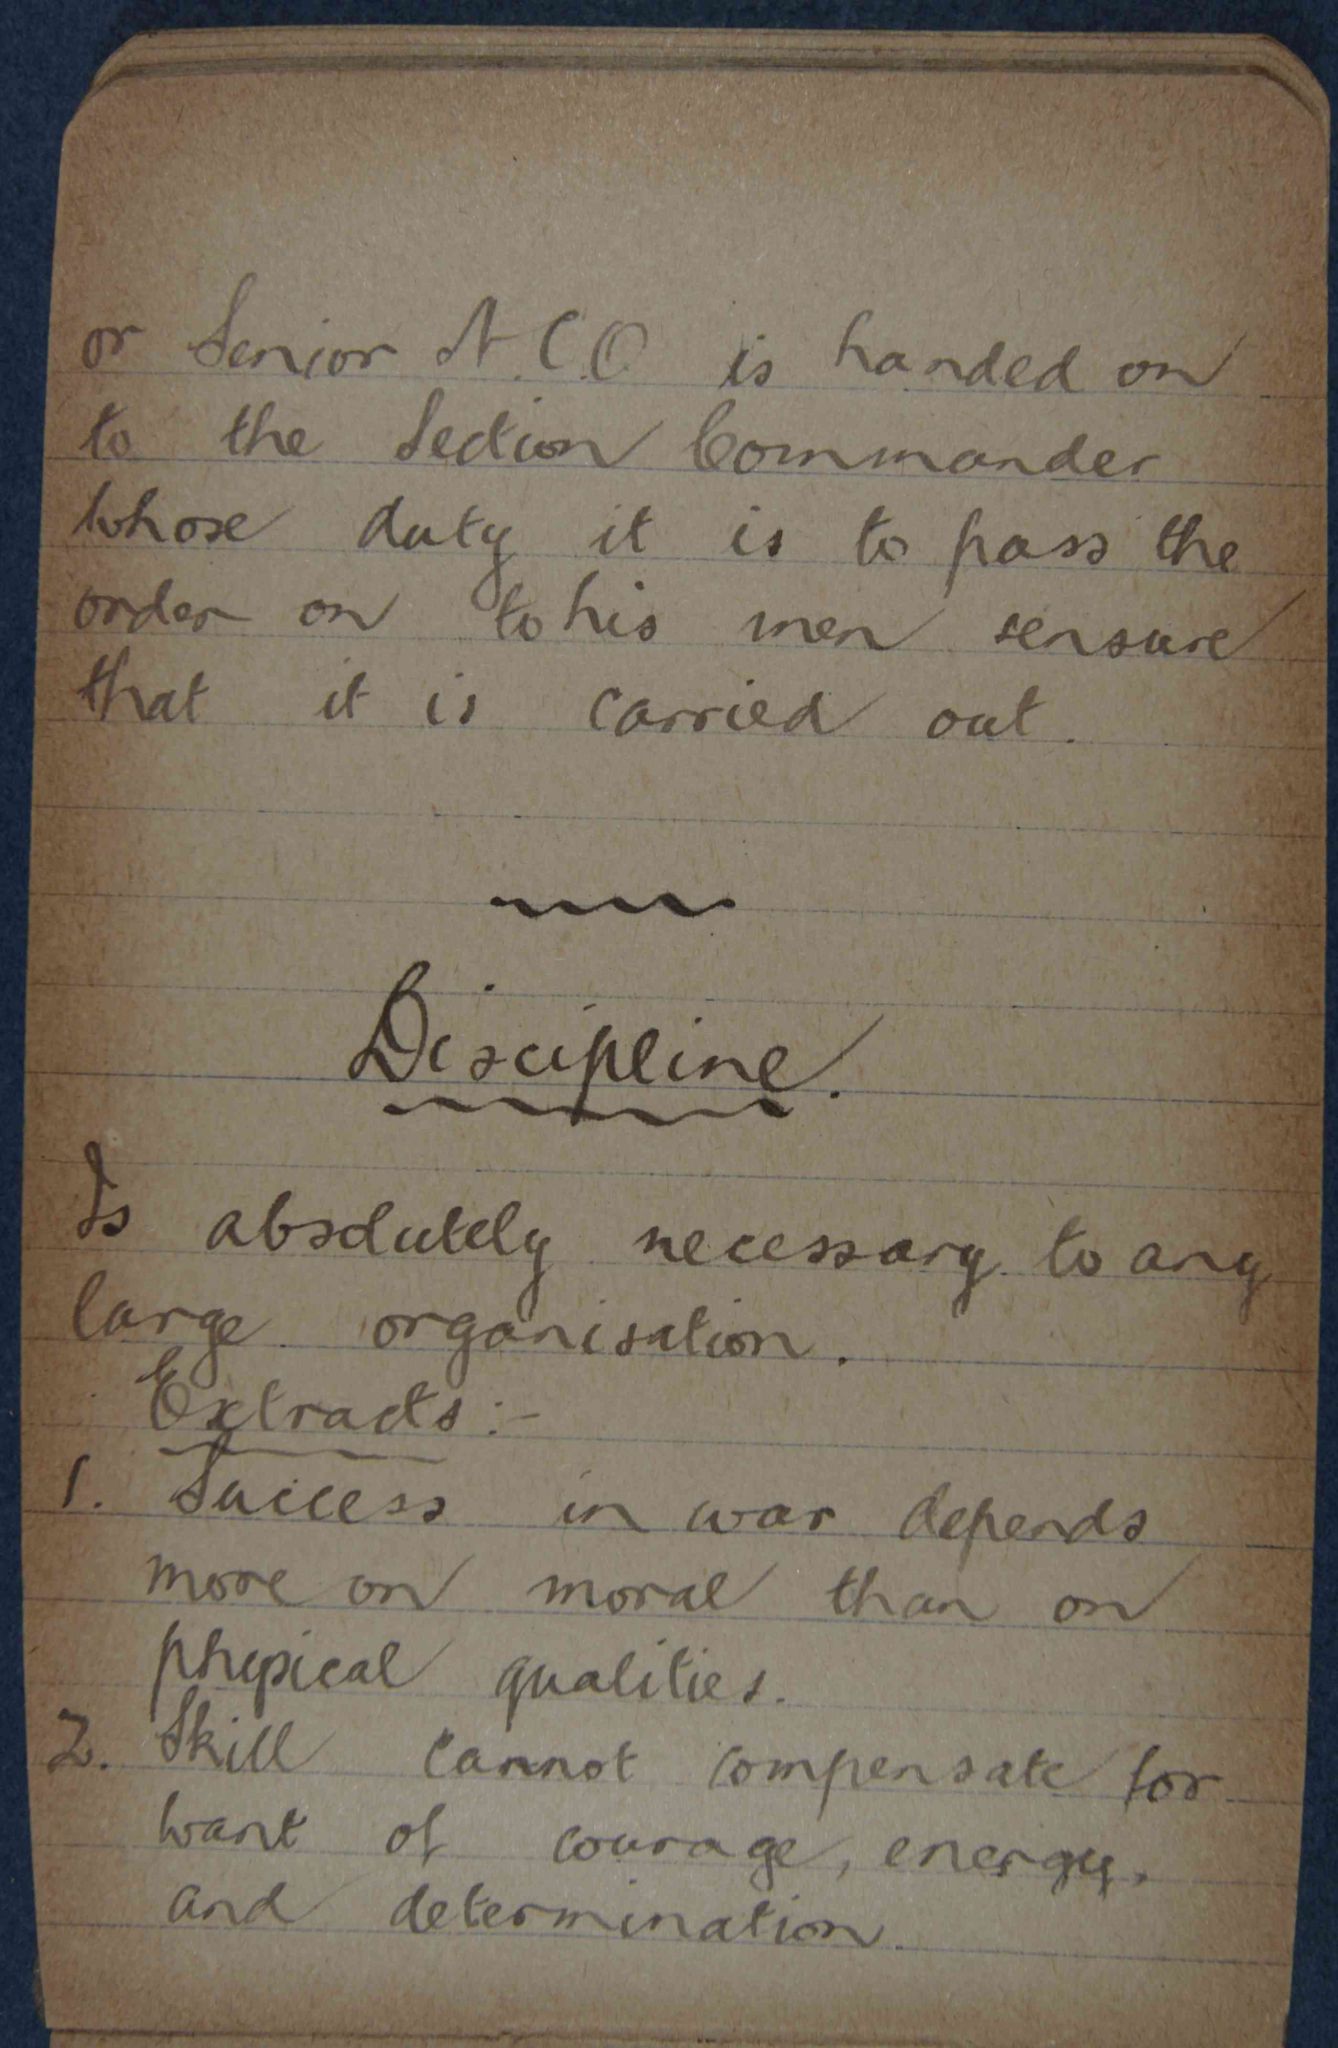 or Senior N.C.O is handed on
to the Section Commander
whose duty it is to pass the
order on to his men & ensure
that it is carried out.
Discipline.
Is absolutely necessary to any
large organisation.
Extracts :-
1. Success in war depends
more on moral than on
physical qualities.
2. Skill cannot compensate for
want of courage, energy,
and determination.